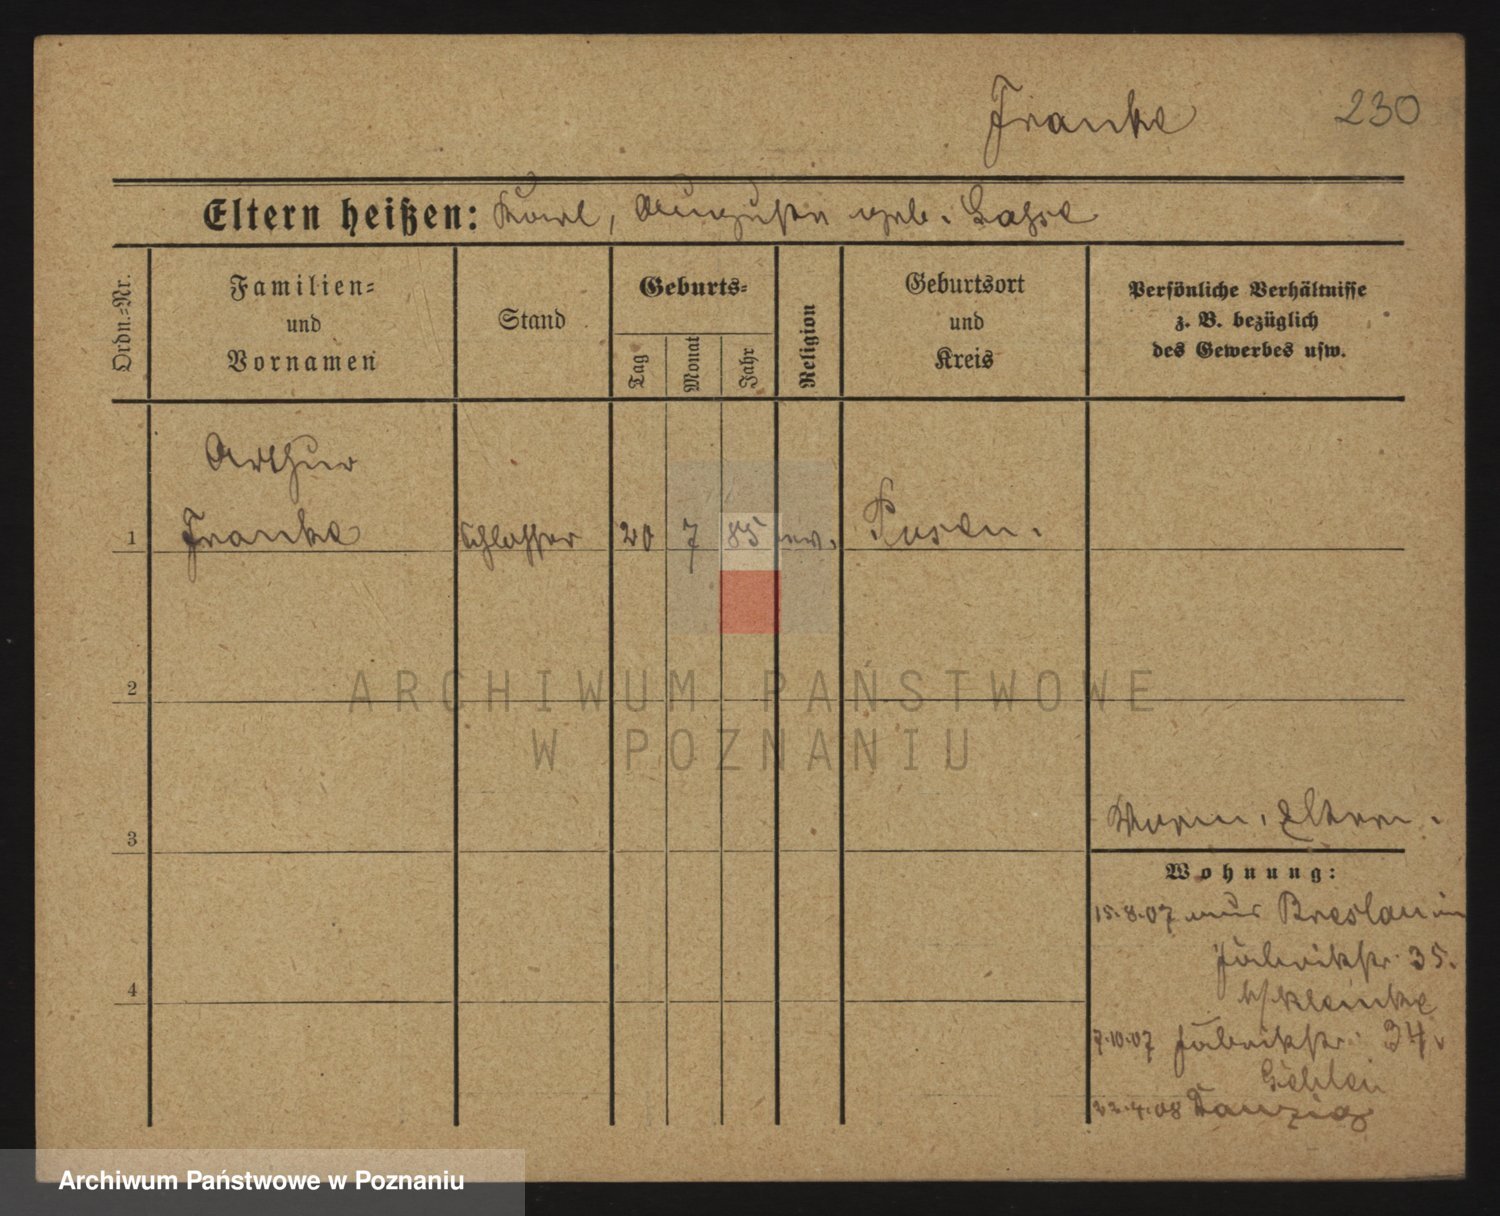 Franke 230
Eltern heißen: Karl, Auguste geb.
Ordn.-Nr.
Familien-
und
Vornamen
Stand
Geburts-
Tag
Monat
Jahr
Religion
Geburtsort
und
Kreis
Persönliche Verhältnisse
z. B. bezüglich
des Gewerbes usw.
Arthur
1 Franke Schlosser 20 7 85 ev. Posen.
2
3
4
Eltern.
Wohnung:
15.8.07 aus Breslau in
Fabrikstr. 35.
b/Kleinke
7.10.07 Fabrikstr. 34
22.4.08 Danzig
ARCHIWUM PAŃSTWOWE
W POZNANIU
Archiwum Państwowe w Poznaniu